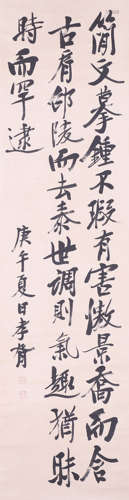 簡文摹鍾不瑕有害懒景喬而含
古肩邵陵而去泰世調則氣趣猶昧
時而罕逮
庚午夏日孝胥